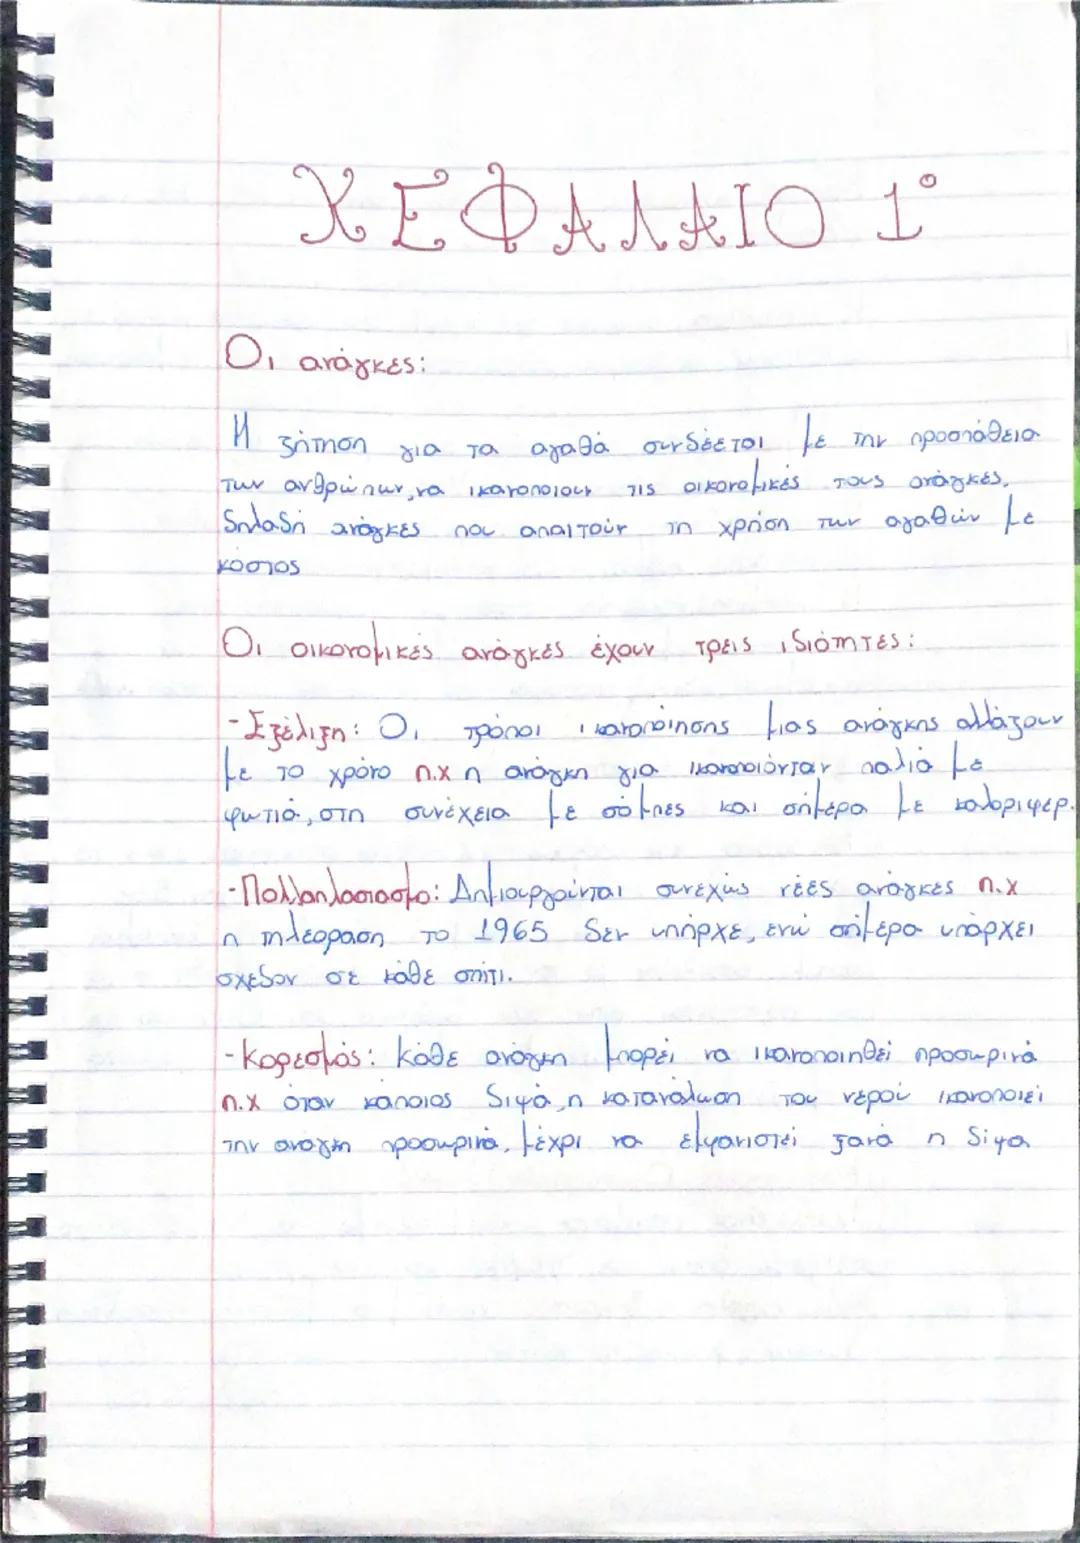 ΚΕΦΑΛΑΙΟ 1°
Οι ανάγκες:
Η ζήτηση για τα αγαθά συνδέεται με την προσπάθεια
των ανθρώπων, να ικανοποιουν τις οικονομικές τους ανάγκες,
δηλαδή ανάγκες που απαιτούν τη χρήση των αγαθών με
κόστος
Οι οικονομικές ανάγκες έχουν τρεις ιδιότητες:
-Εξέλιξη: Οι τρόποι ικανοποίησης μιας ανάγκης αλλάζουν
με το χρόνο π.χ η ανάγκη για ικανοποιόνταν παλιά με
φωτιά, στη συνέχεια με σόμπες και σήμερα με καλοριφερ.
-Πολλαπλασιασμο: Δημιουργούνται συνεχώς νέες ανάγκες π.χ
η τηλεοραση το 1965 δεν υπήρχε, ενώ σήμερα υπάρχει
σχεδον σε κάθε σπίτι.
-Κορεσμός: Κάθε ανάγκη μπορεί να ικανοποιηθεί προσωρινά
π.χ όταν κάποιος διψά, η κατανάλωση του νερού ικανοποιεί
την ανάγκη προσωρινά, μέχρι να εμφανιστεί ξανά η δίψα